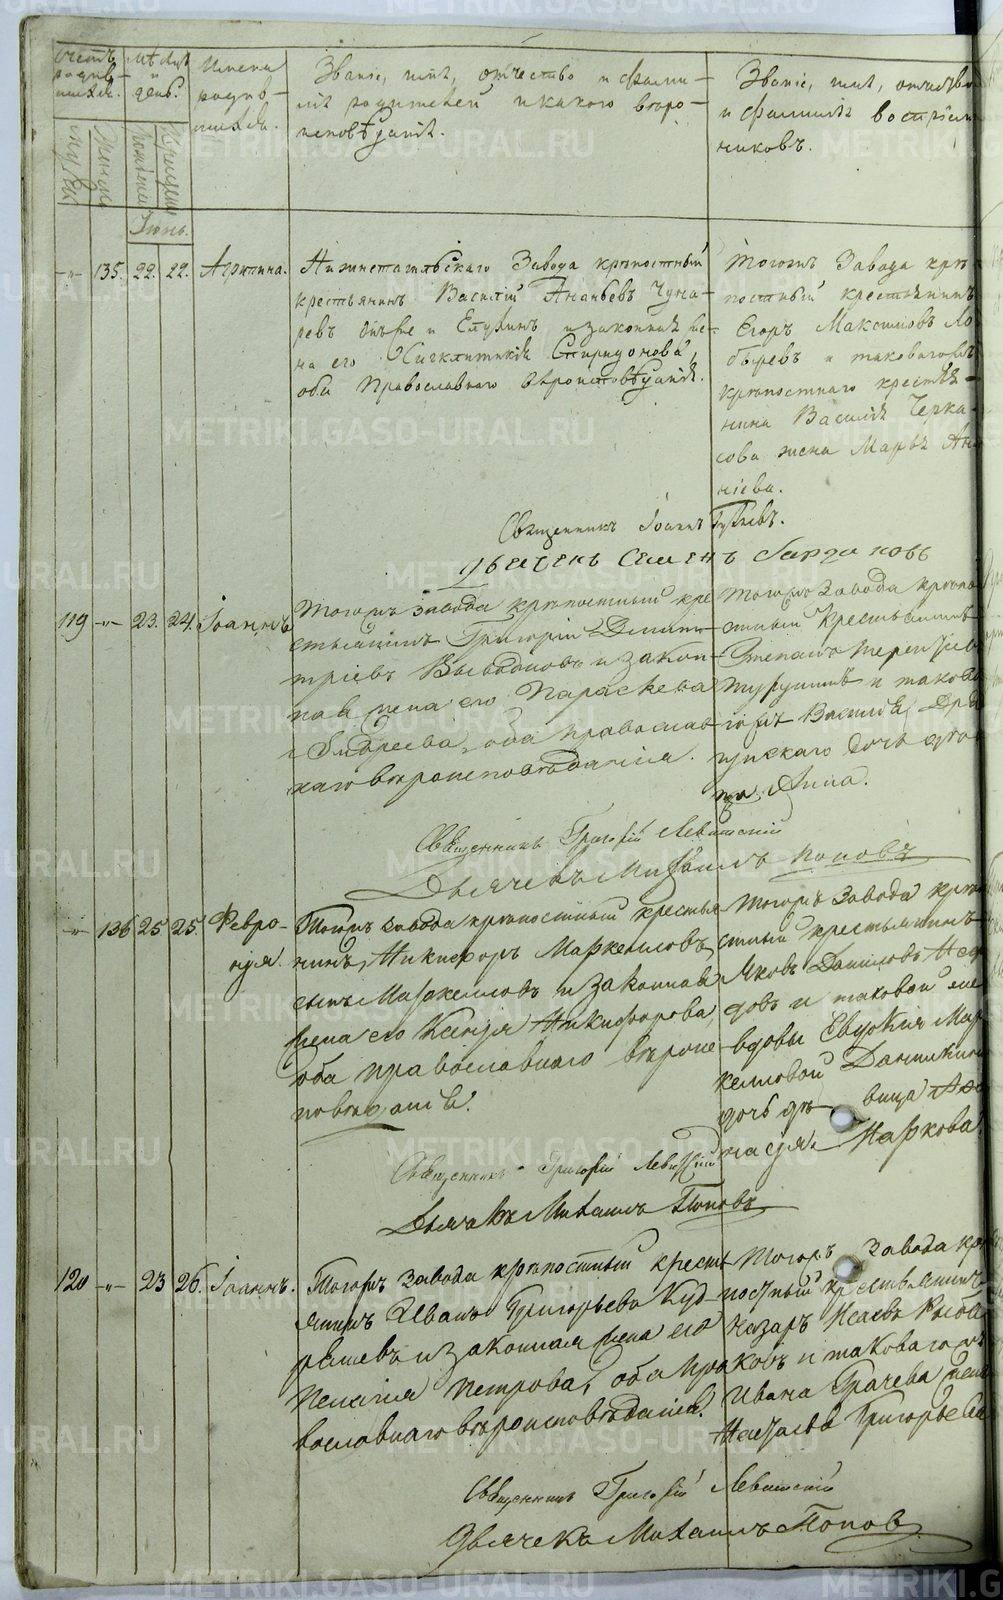 Счетъ родив-шихся.
Мѣсяцъ и день.
Имена родив-шихся.
Званіе, имя, отчество и фами-
лія родителей и какого веро-
исповѣданія.
Званіе, имя, отчество
и фамилія воспріем-
никовъ.
Мужеска
Женска
Рожденія
Крещенія
Іюнь.
-"- 135. 22. 22.
Нижнетагильскаго Завода крѣпостный
крестьянинъ Василій Ананьевъ Чуна-
ревъ и законная же-
на его Спиридонова,
оба Православнаго вѣроисповѣданія.
Тогожъ Завода крѣ
постный крестьянинъ
Егоръ Максимовъ Ло
быревъ и таковагожъ
крѣпостнаго крестья-
нина Василія Черка-
сова жена Марья Ана
ніева.
Священникъ Іоаннъ
Дьячекъ Семенъ
119 -"- 23. 24. Іоаннъ
Тогожъ завода крѣпостный кре
стьянинъ Григорій Дими-
тріевъ и закон-
ная жена его Параскева
Андреева, оба православ
наго вѣроисповѣданія.
Тогожъ Завода крѣпо
стный крестьянинъ
Степанъ Терентьевъ
и таково
гожъ Василія
дочь дѣви
ца Анна.
Священникъ Григорій Левитскій
Дьячекъ Михаилъ Поповъ
-"- 136 25 25. Февро-
нія.
Тогожъ завода крѣпостный крестья
нинъ, Никифоръ Маркелловъ,
сынъ Маркелловъ и законная
жена его Ксенія Никифорова,
оба православнаго вѣроис-
повѣданія.
Тогожъ Завода крѣпо
стный крестьянинъ
Яковъ Даниловъ
довъ и таковой же
вдовы Евдокіи Мар
келловой
дочь дѣвица
Маркова.
Священникъ Григорій Левитскій
Дьячекъ Михаилъ Поповъ
120 -"- 23 26. Іоаннъ.
Тогожъ Завода крѣпостный кресть
янинъ Иванъ Григорьевъ Куд-
ряшевъ и законная жена его
Пелагія Петрова, оба пра
вославнаго вѣроисповѣданія.
Тогожъ Завода крѣ
постный крестьянинъ
Назаръ Исаевъ Рыба
ковъ и таковагожъ
Ивана Грачева жена
Наталья Григорьева
Священникъ Григорій Левитскій
Дьячекъ Михаилъ Поповъ
METRIKI.GASO-URAL.RU